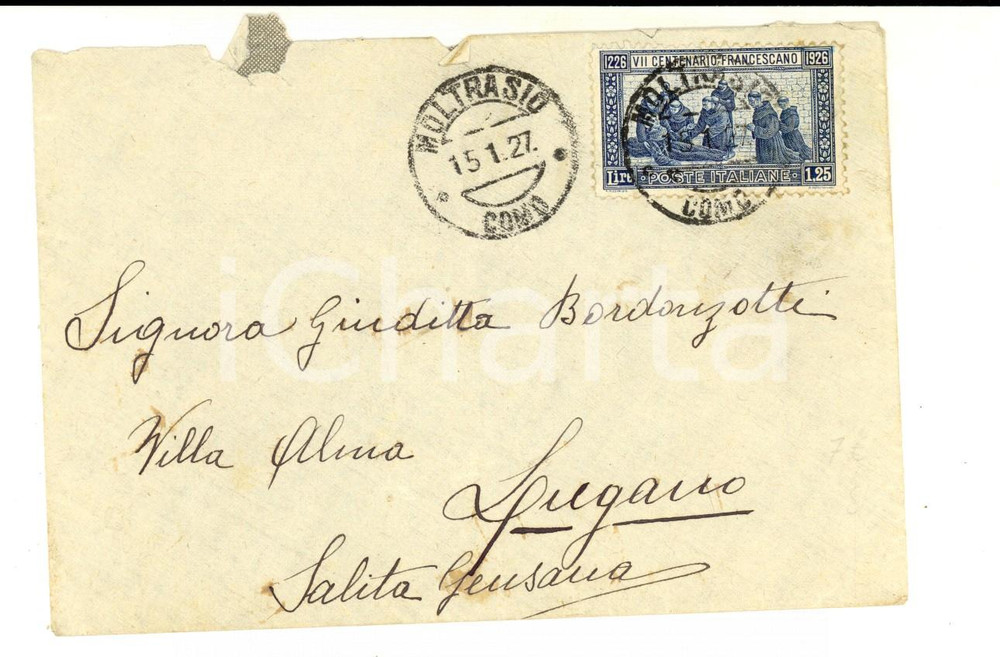 1226 VII CENTENARIO FRANCESCANO 1926
MOLTRASIO
15.1.27.
COMO
MOLTRASIO
COMO
Lire POSTE ITALIANE 1.25
iCharta
Signora Giuditta Bordonzotti
Villa Alma
Lugano
Salita Gensana